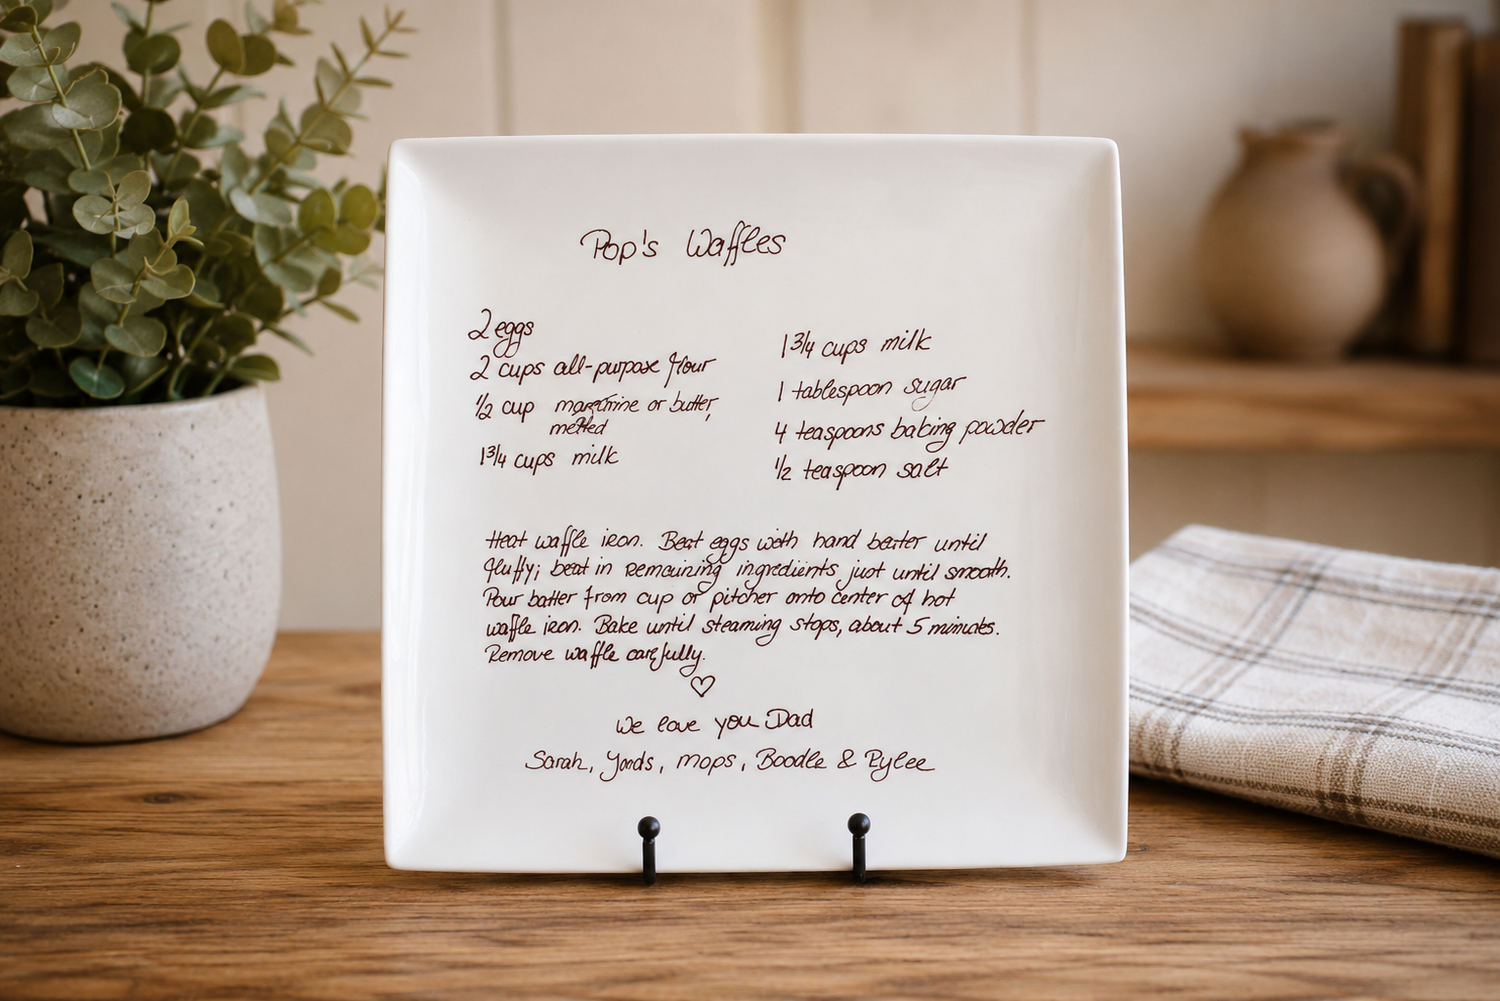 Pop's Waffles
2 eggs
2 cups all-purpose flour
1/2 cup margarine or butter,
melted
1 3/4 cups milk
1 3/4 cups milk
1 tablespoon sugar
4 teaspoons baking powder
1/2 teaspoon salt
Heat waffle iron. Beat eggs with hand beater until
fluffy; beat in remaining ingredients just until smooth.
Pour batter from cup or pitcher onto center of hot
waffle iron. Bake until steaming stops, about 5 minutes.
Remove waffle carefully.
We love you Dad
Sarah, , mops, Boodle & Rylee